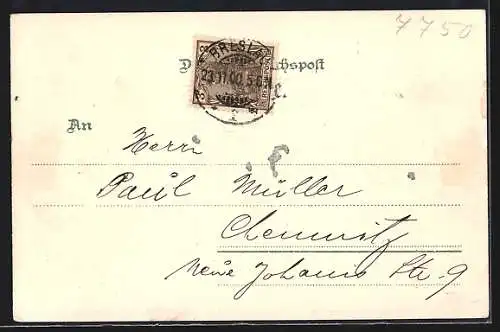 7750
BRESLAU
23.11.00.
D chspost
e.
An
Herrn
Paul Müller
Chemnitz
Neue Johannis Str. 9